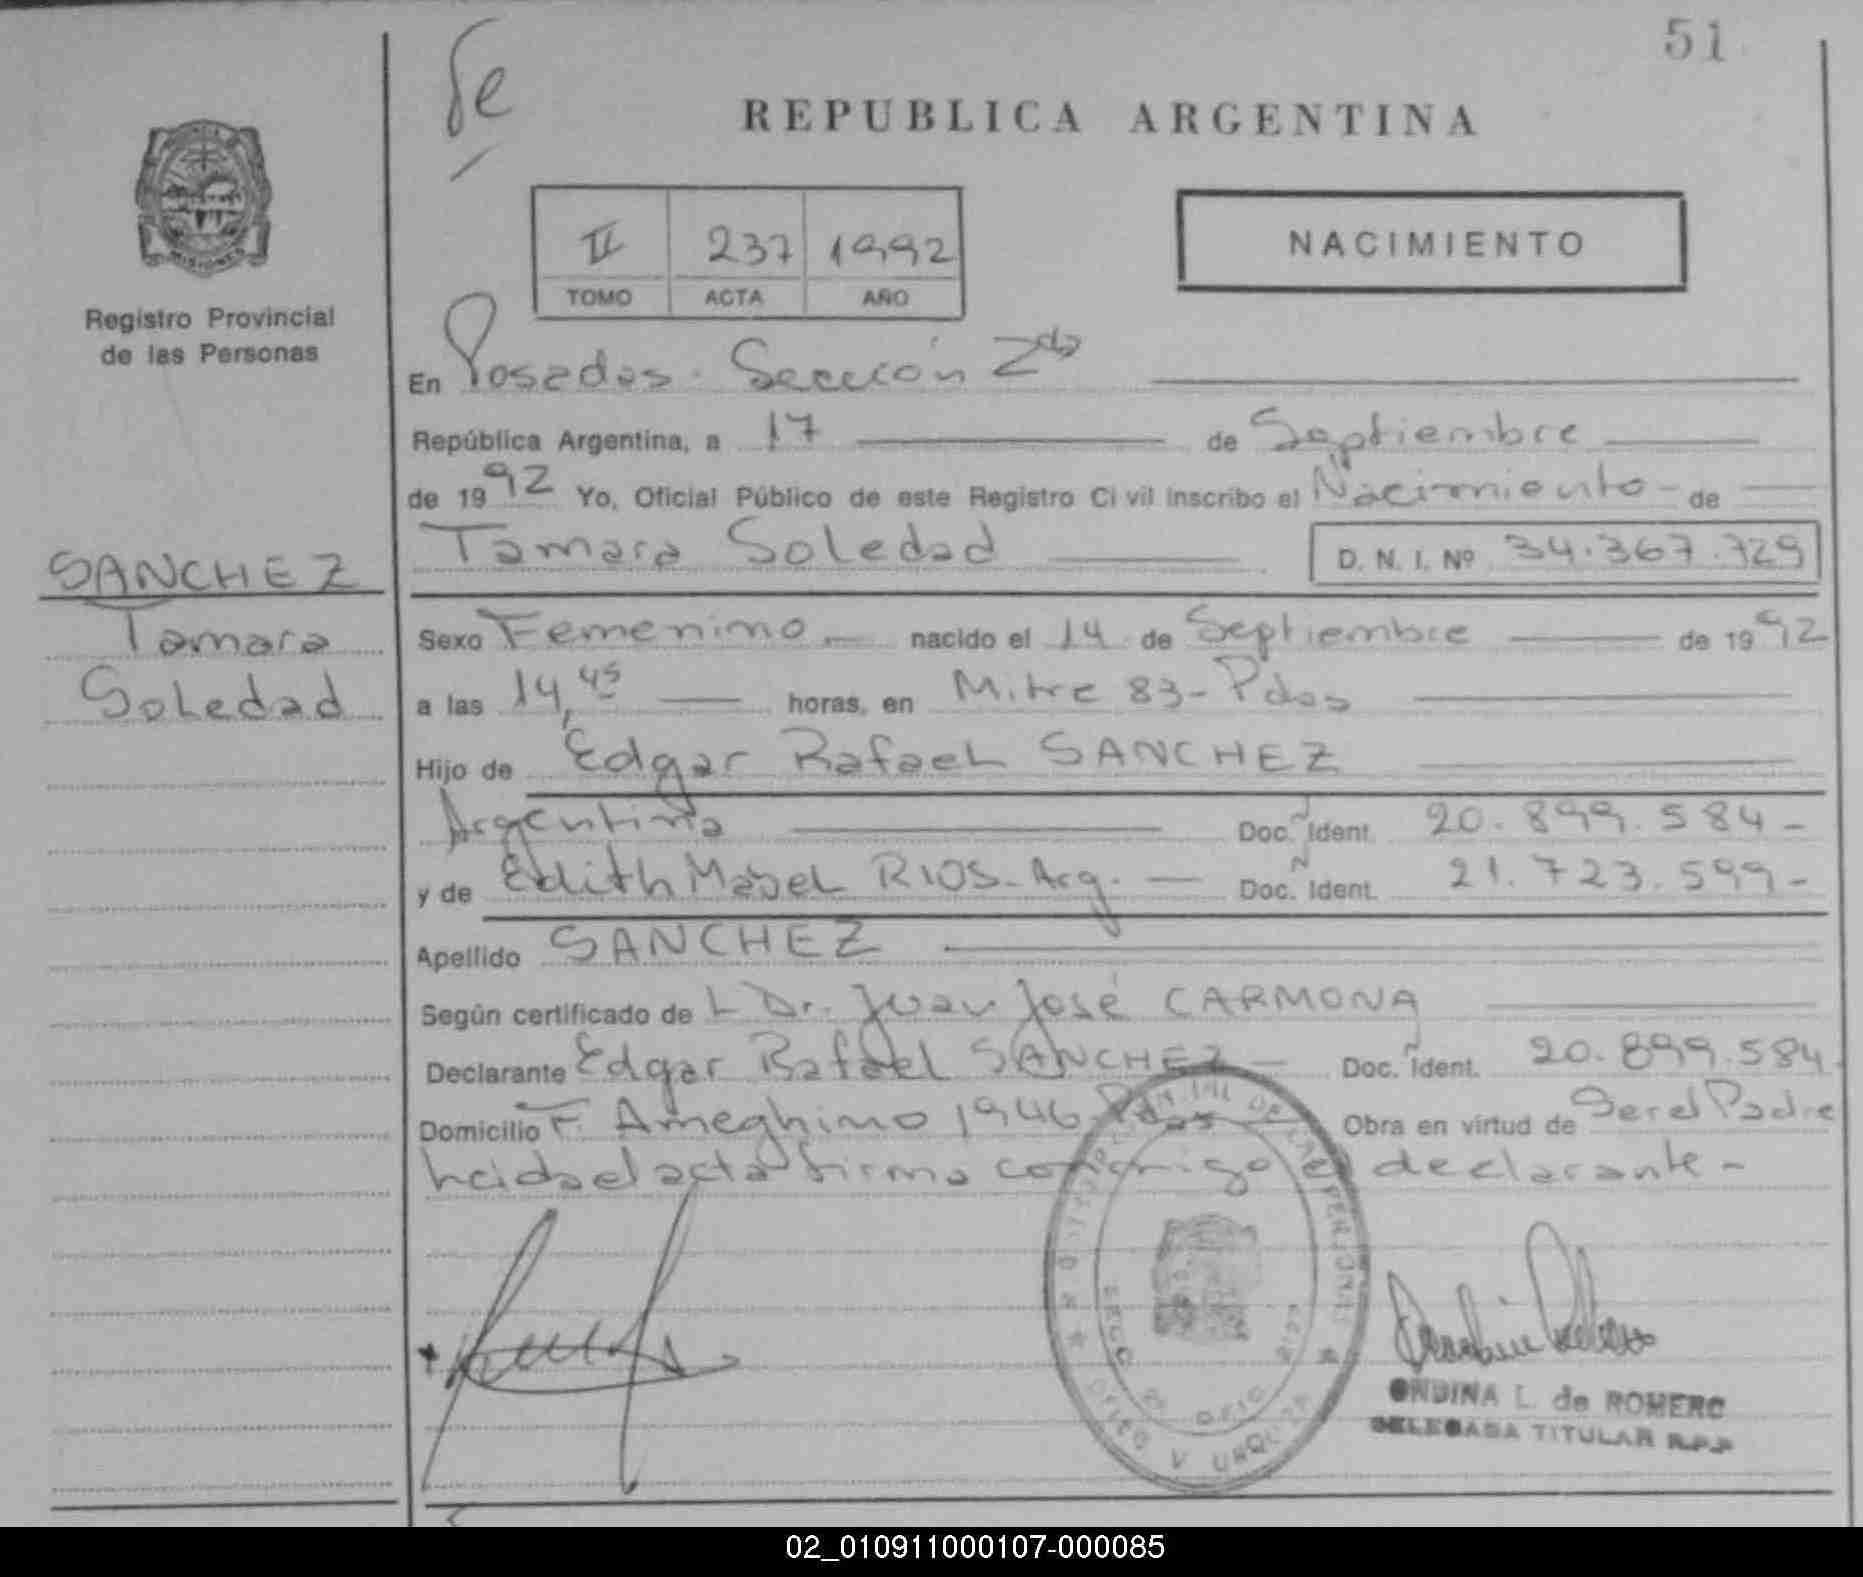 51
REPUBLICA ARGENTINA
MISIONES
Registro Provincial
de las Personas
II 237 1992
TOMO ACTA AÑO
NACIMIENTO
En Posadas - Sección 2da
República Argentina, a 17 de Septiembre
de 1992 Yo, Oficial Público de este Registro Civil inscribo el Nacimiento - de
Tamara Soledad D. N. I. Nº 34.367.729
SANCHEZ
Tamara
Soledad
Sexo Femenino nacido el 14 de Septiembre de 1992
a las 14,45 horas, en Mitre 83 - Pdas
Hijo de Edgar Rafael SANCHEZ
Argentina Doc. Ident. 20.899.584 -
y de Edith Mabel RIOS - Arg. - Doc. Ident. 21.723.599 -
Apellido SANCHEZ
Según certificado de L Dr. Juan José CARMONA
Declarante Edgar Rafael SANCHEZ - Doc. Ident. 20.899.584
Domicilio F. Ameghino 1946 Pdas Obra en virtud de Ser el Padre
leida el acta firma conmigo el declarante -
ONDINA L. de ROMERO
DELEGADA TITULAR R.P.P
02_010911000107-000085